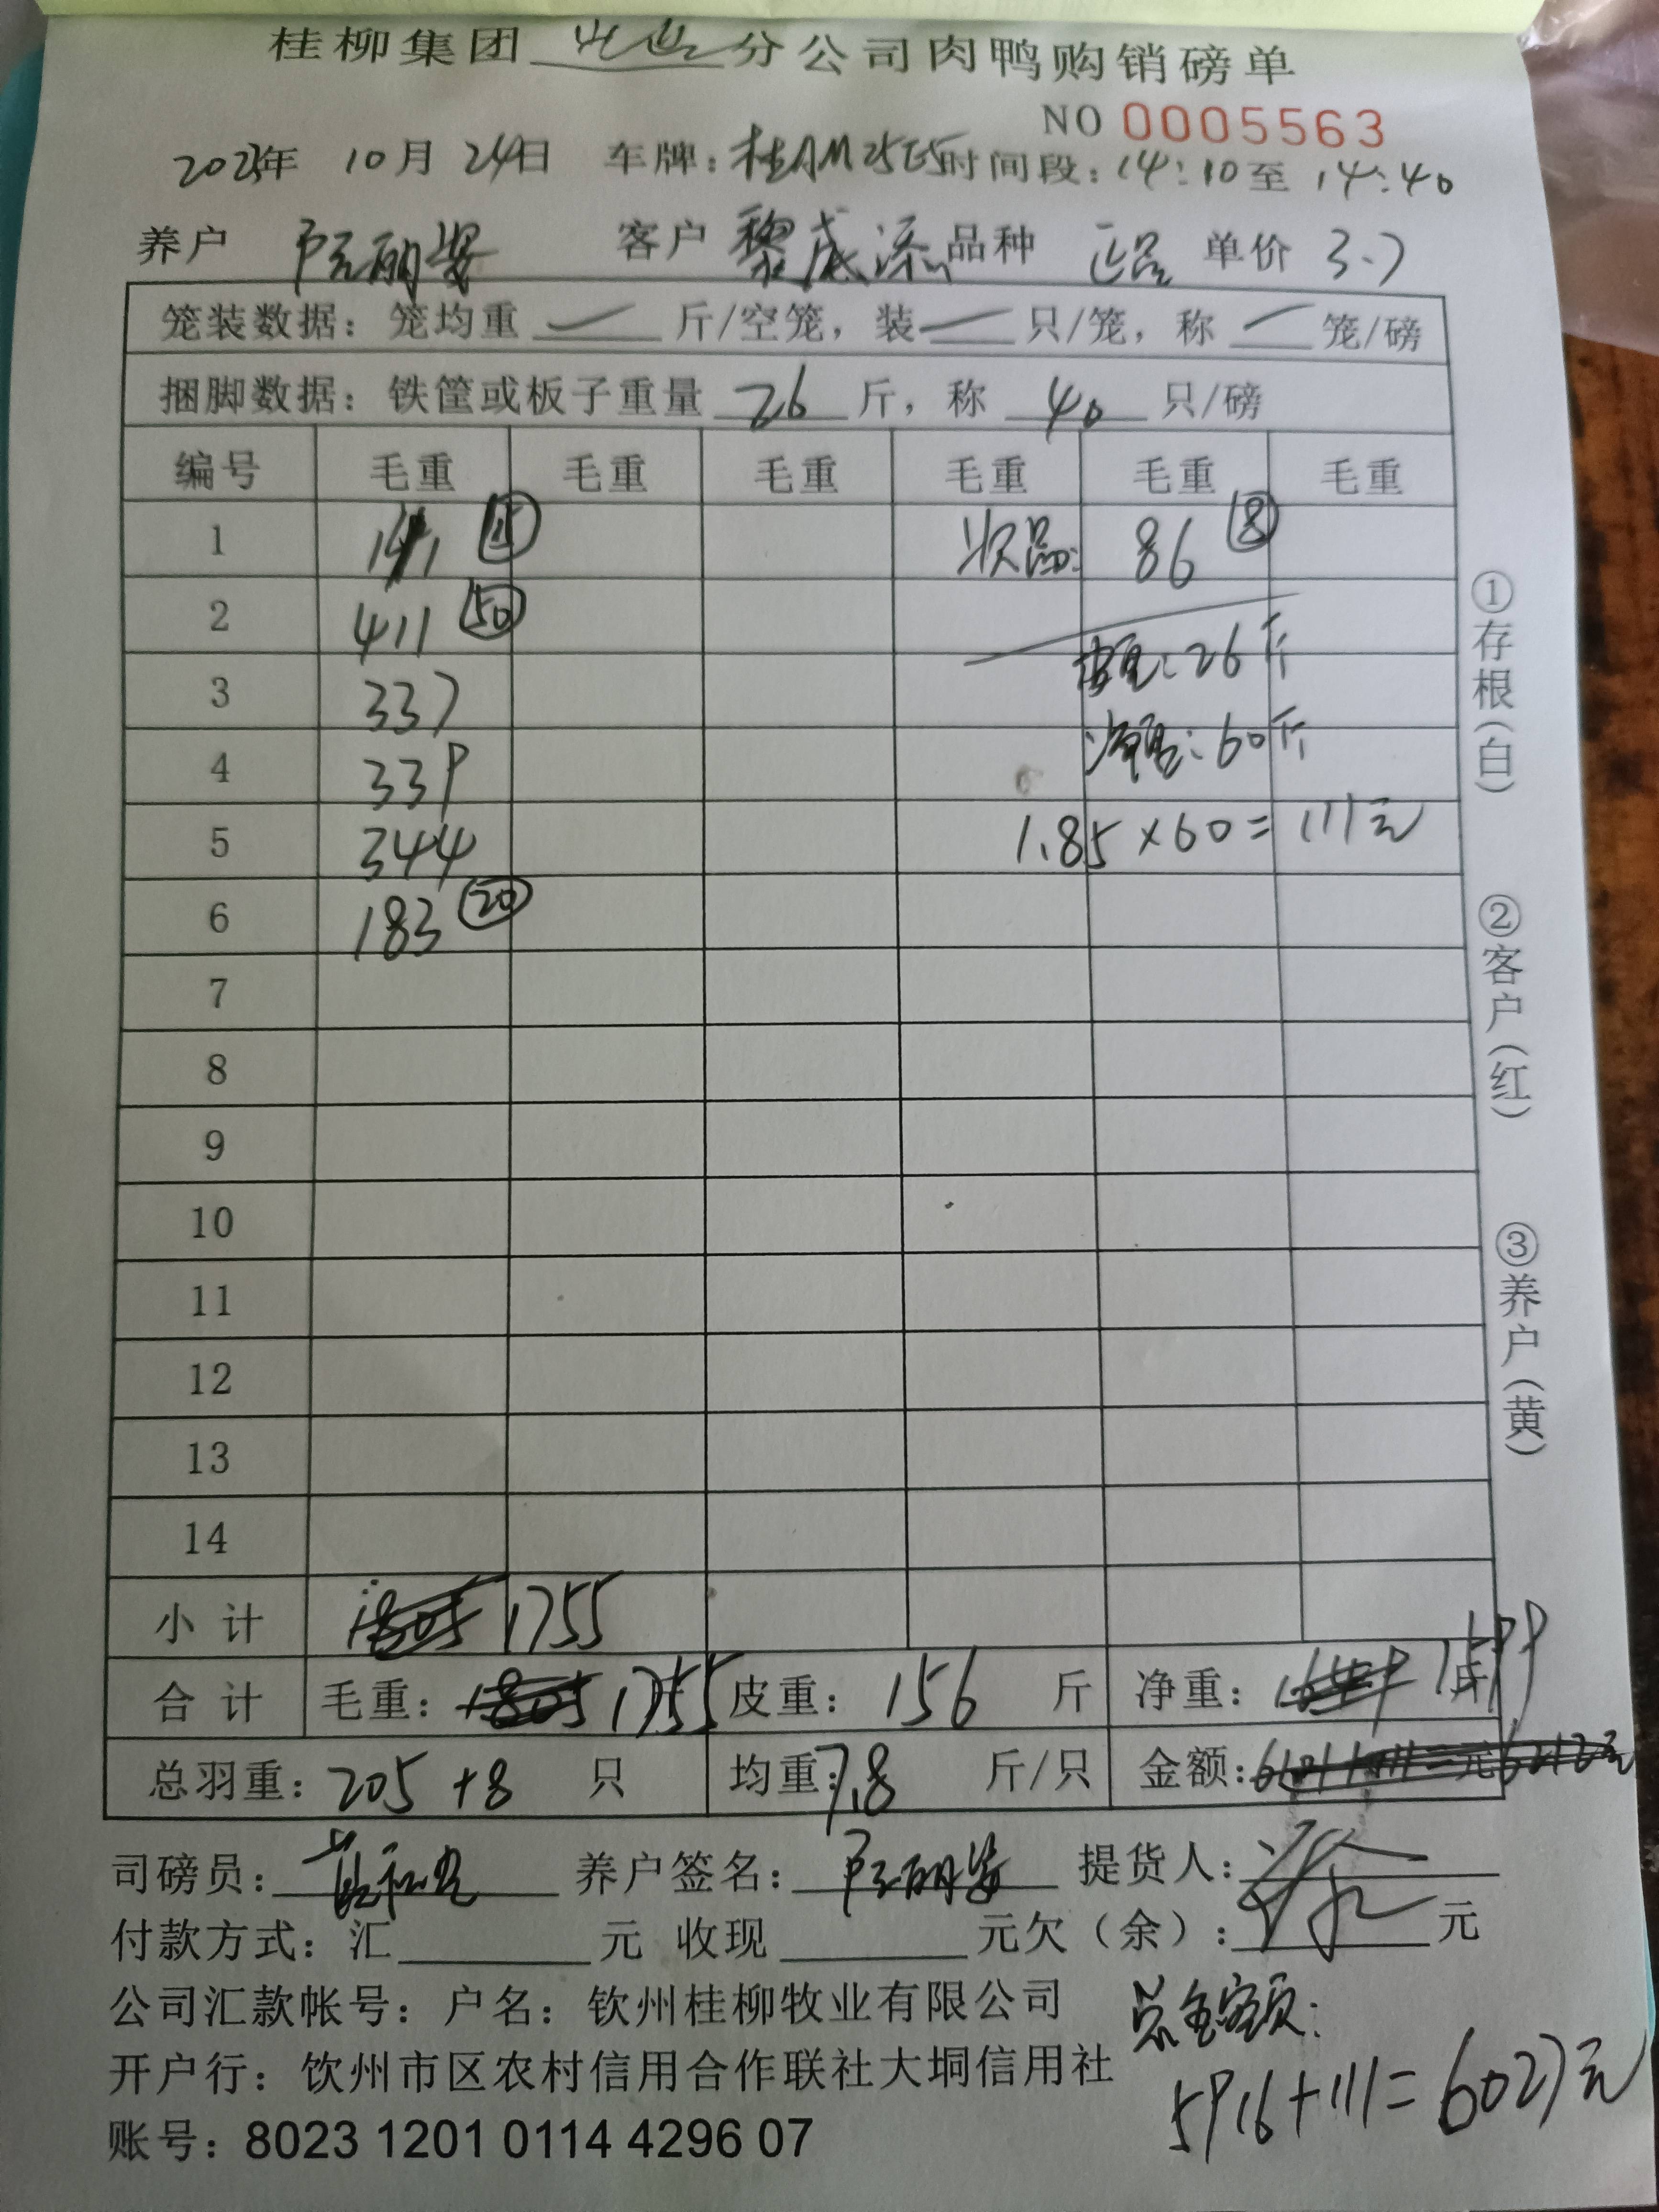 桂柳集团 分公司肉鸭购销磅单
NO 0005563
2023年 10月 24日 车牌:桂AM25E5 时间段:14:10至 14:40
养户 客户 黎 添 品种 正品 单价 3.7
笼装数据:笼均重 — 斤/空笼,装 — 只/笼,称 — 笼/磅
捆脚数据:铁筐或板子重量 26 斤,称 40 只/磅
编号 毛重 毛重 毛重 毛重 毛重 毛重
1 141 ⑮ 次品: 86 ⑧
2 411 ㊿ 皮重:26斤
3 337
4 339 净重:60斤
5 344 1.85×60=111元
6 183 ⑳
7
8
9
10
11
12
13
14
小计 1755
合计 毛重:1755 皮重:156 斤 净重:1599 斤
总羽重:205+8 只 均重:7.8 斤/只 金额: 元
司磅员: 养户签名: 提货人:
付款方式:汇 元 收现 元欠(余): 元
公司汇款帐号:户名:钦州桂柳牧业有限公司
总金额:
开户行:钦州市区农村信用合作联社大垌信用社
5916+111=6027元
账号:8023 1201 0114 4296 07
①存根(白)
②客户(红)
③养户(黄)